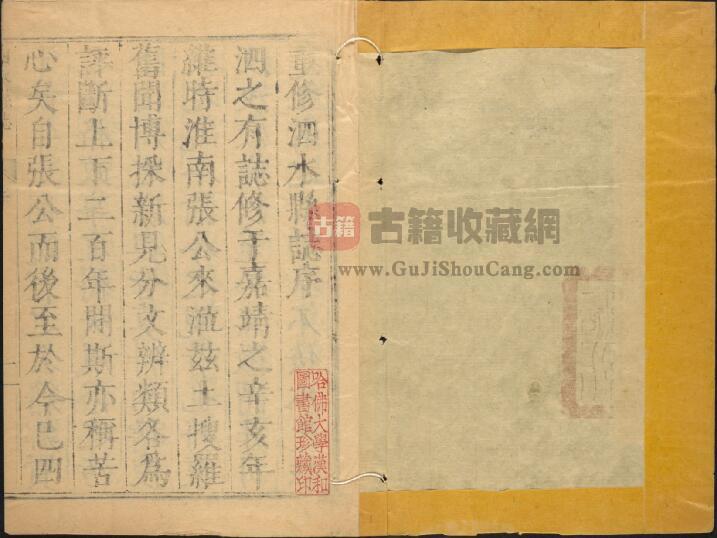 重修泗水縣誌序
泗之有誌修于嘉靖之辛亥年
維時淮南張公來涖茲土搜羅
舊聞博採新見分文辨類各為
評斷上下二百年間斯亦稱苦
心矣自張公而後至於今已四
哈佛大學漢和
圖書館珍藏印
古籍 古籍收藏網
www.GuJiShouCang.com